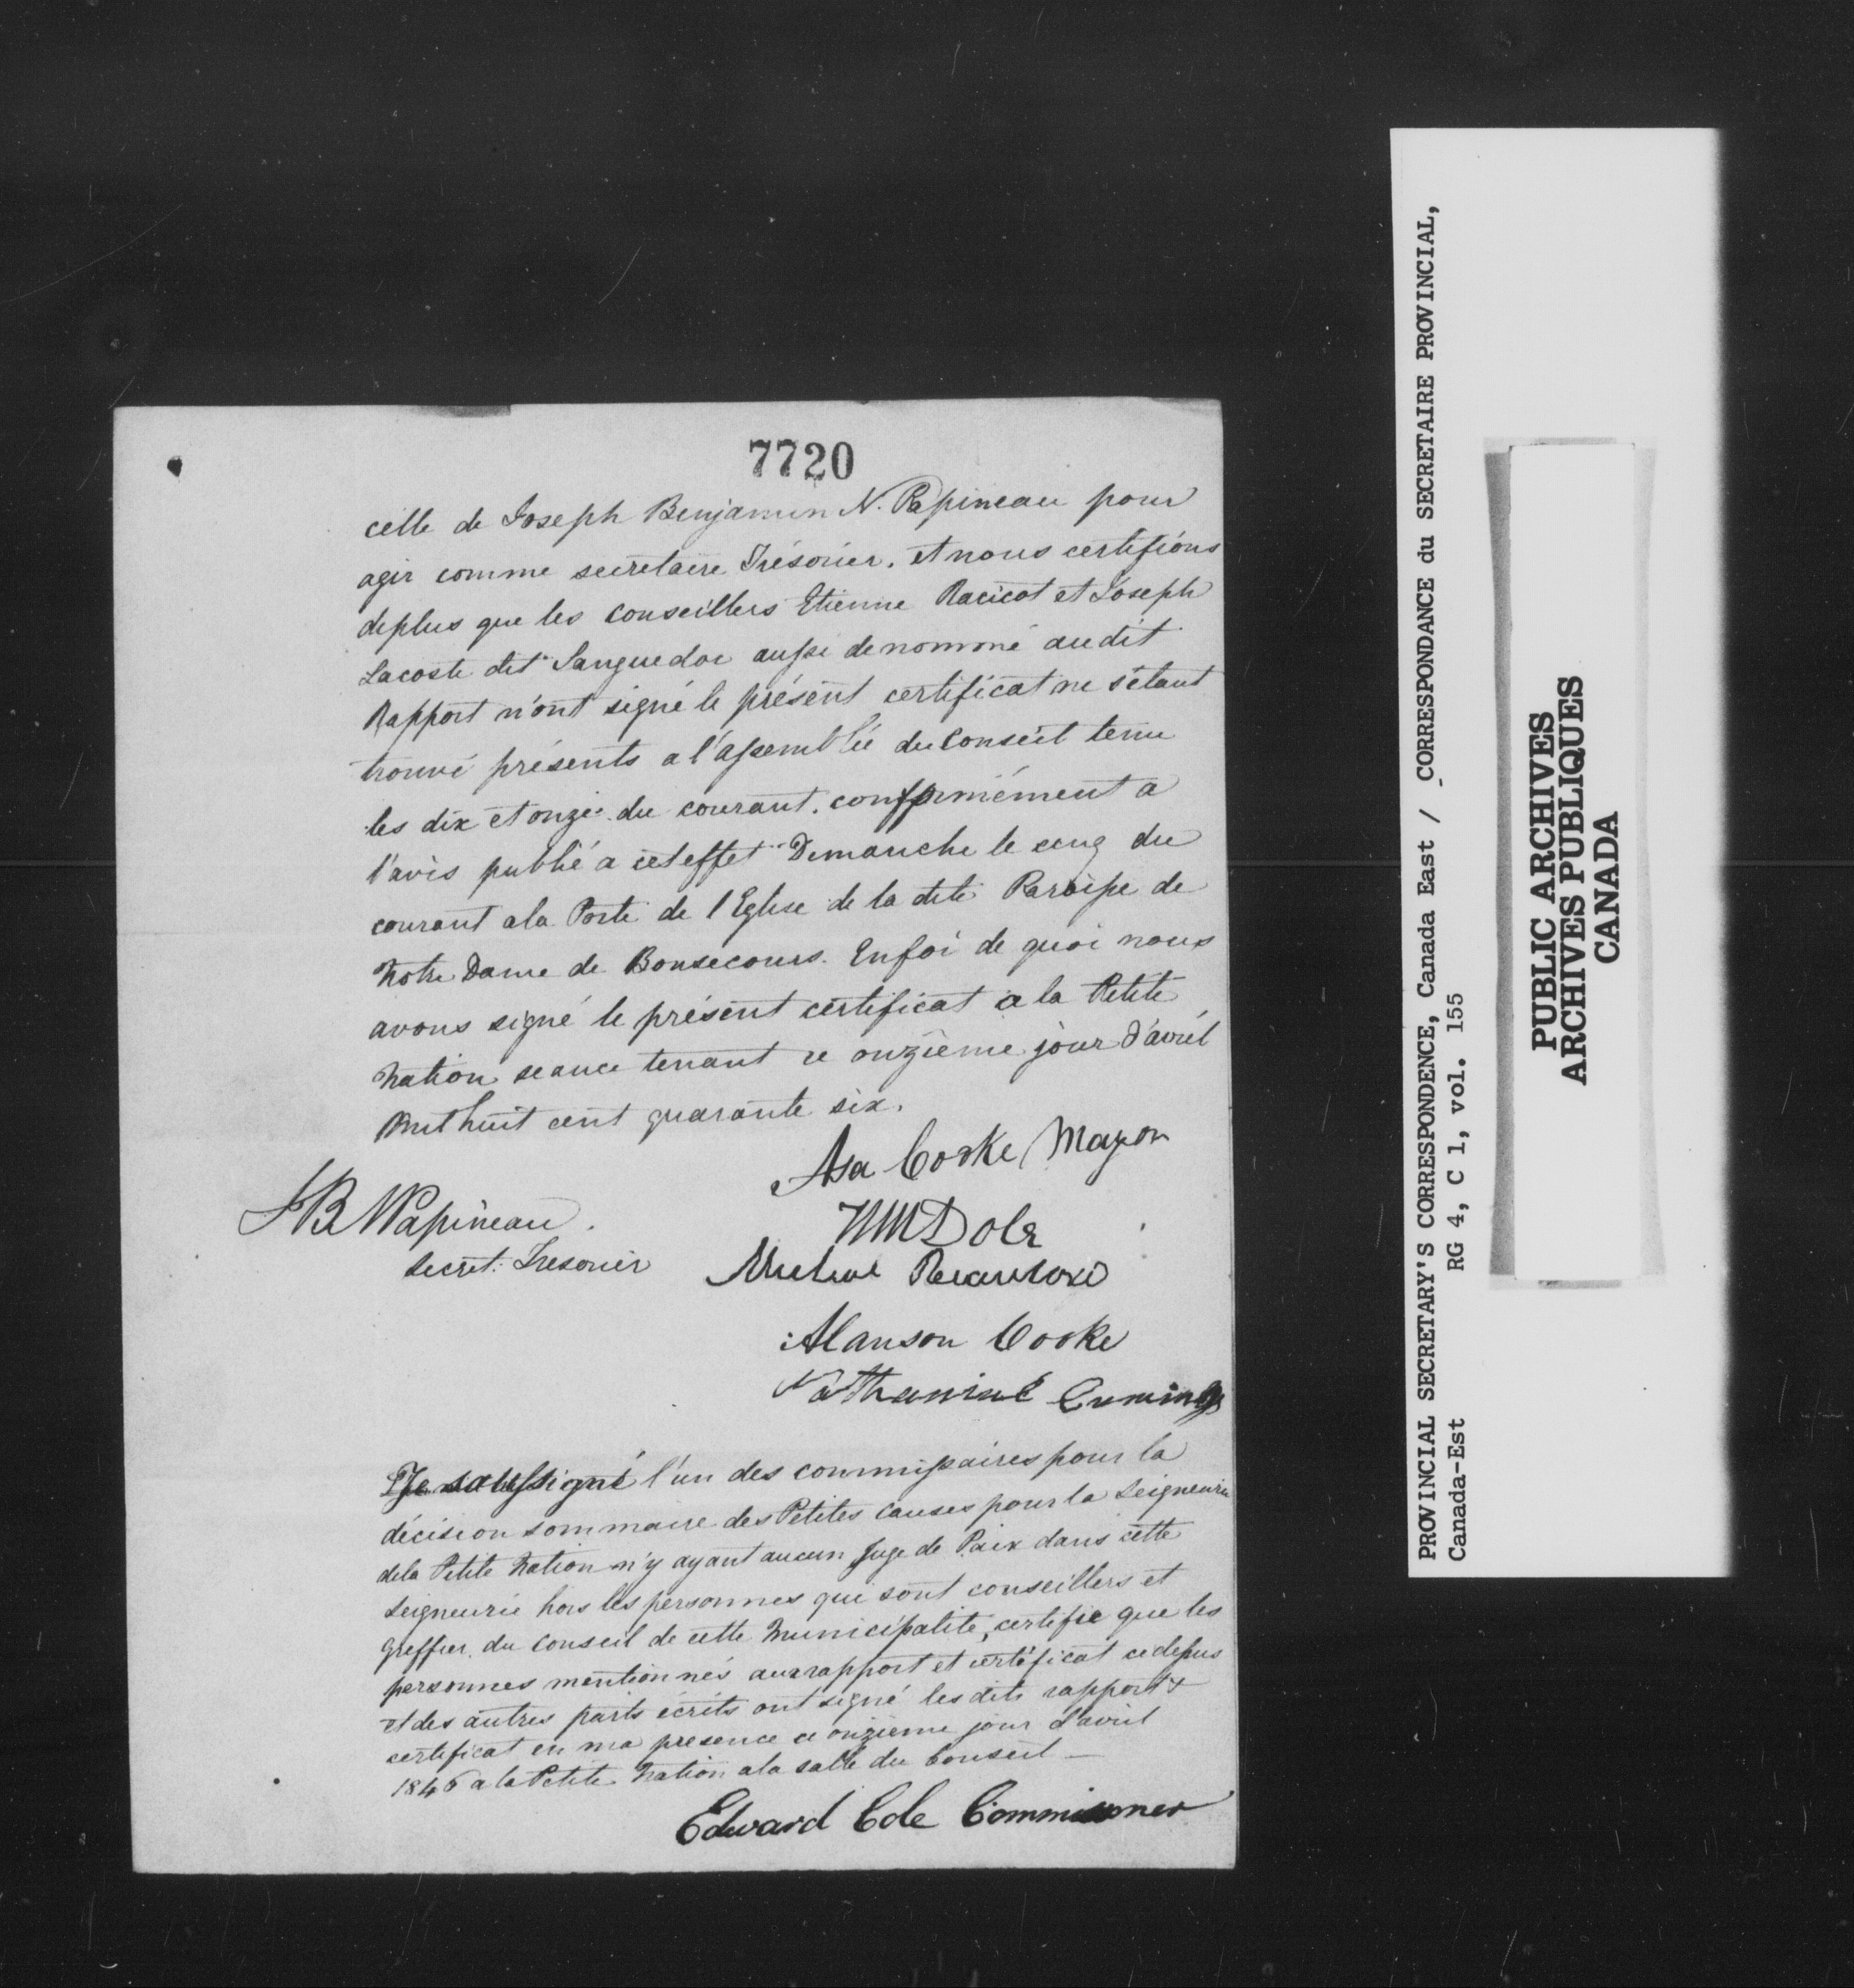 7720
celle de Joseph Benjamin N. Papineau pour
agir comme secretaire Trésorier. et nous certifions
deplus que les conseillers Etienne Racicot et Joseph
Lacoste dit Languedoc aussi denommé audit
Rapport n'ont signé le présent certificat ne s'étant
trouvé présents a l'assemblée du Conseil tenu
les dix et onze du courant. conformément a
l'avis publié a cet effet Dimanche le cinq du
courant a la Porte de l'Eglise de la dite Paroisse de
Notre Dame de Bonsecours. Enfoi de quoi nous
avons signé le présent certificat a la Petite
Nation seance tenant ce onzième jour d'avril
Mil huit cent quarante six.
Asa Cooke Mayor
J B N Papineau.
Secret. Tresorier
Alanson Cooke
Nathaniel Cumings
Je soussigné l'un des commissaires pour la
décision sommaire des Petites Causes pour la Seigneurie
dela Petite Nation n'y ayant aucun Juge de Paix dans cette
Seigneurie hors les personnes qui sont conseillers et
greffier du Conseil de cette Municipalité, certifie que les
personnes mentionnés aux rapport et certificat cidessus
et des autres parts écrits ont signé les dits rapport &
certificat en ma presence ce onzieme jour d'avril
1846 a la Petite Nation a la salle du Conseil —
Edward Cole Commissioner
PROVINCIAL SECRETARY'S CORRESPONDENCE, Canada East / CORRESPONDANCE du SECRETAIRE PROVINCIAL,
Canada-Est RG 4, C 1, vol. 155
PUBLIC ARCHIVES
ARCHIVES PUBLIQUES
CANADA